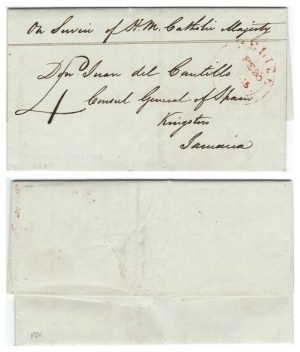 On Service of H. M. Catholic Majesty
Dn Juan del Castillo
Consul General of Spain
Kingston
Jamaica
4